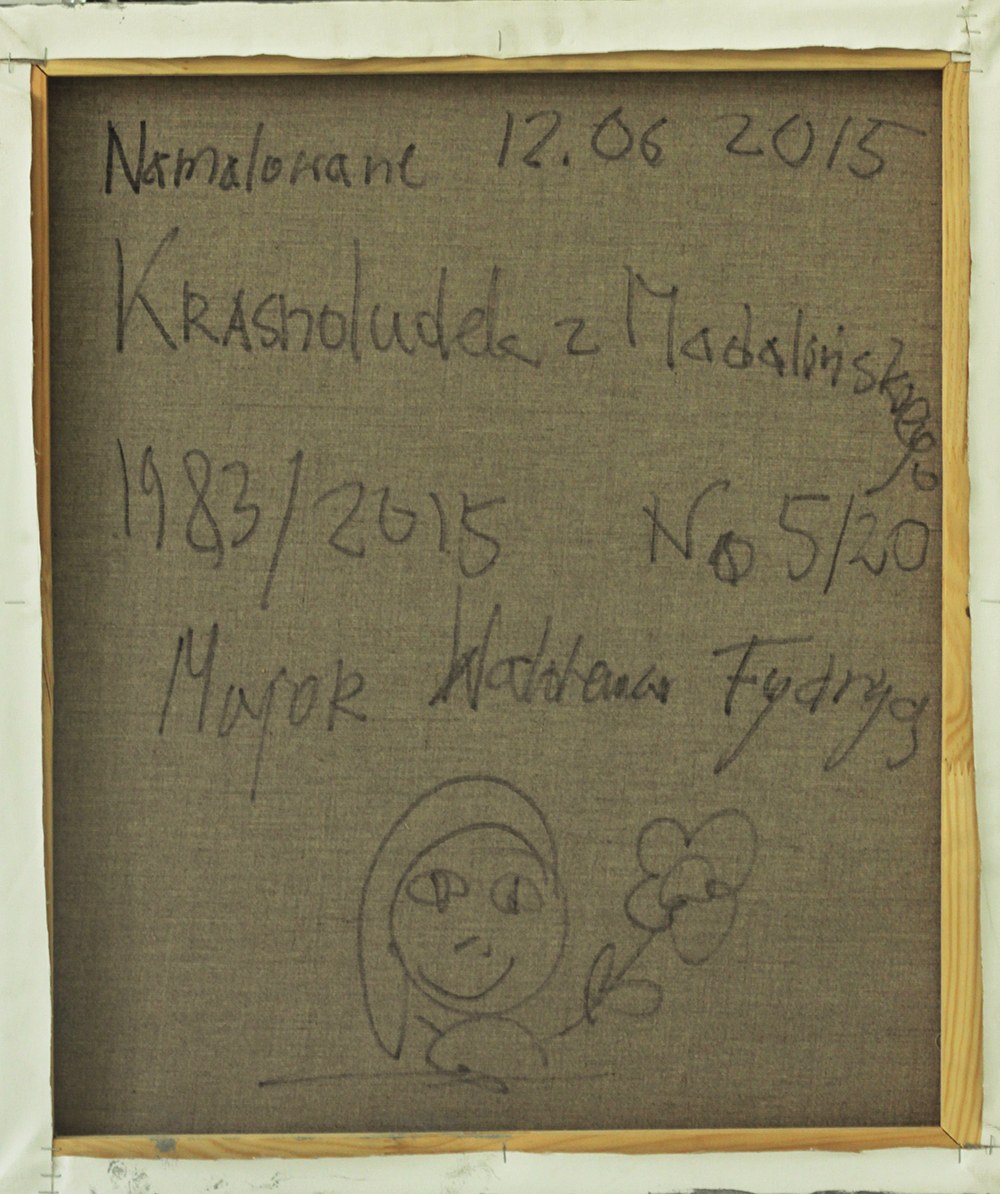 Namalowane 12.06 2015
Krasnoludek z Madalińskiego
1983/2015 No 5/20
Major Waldemar Fydrych